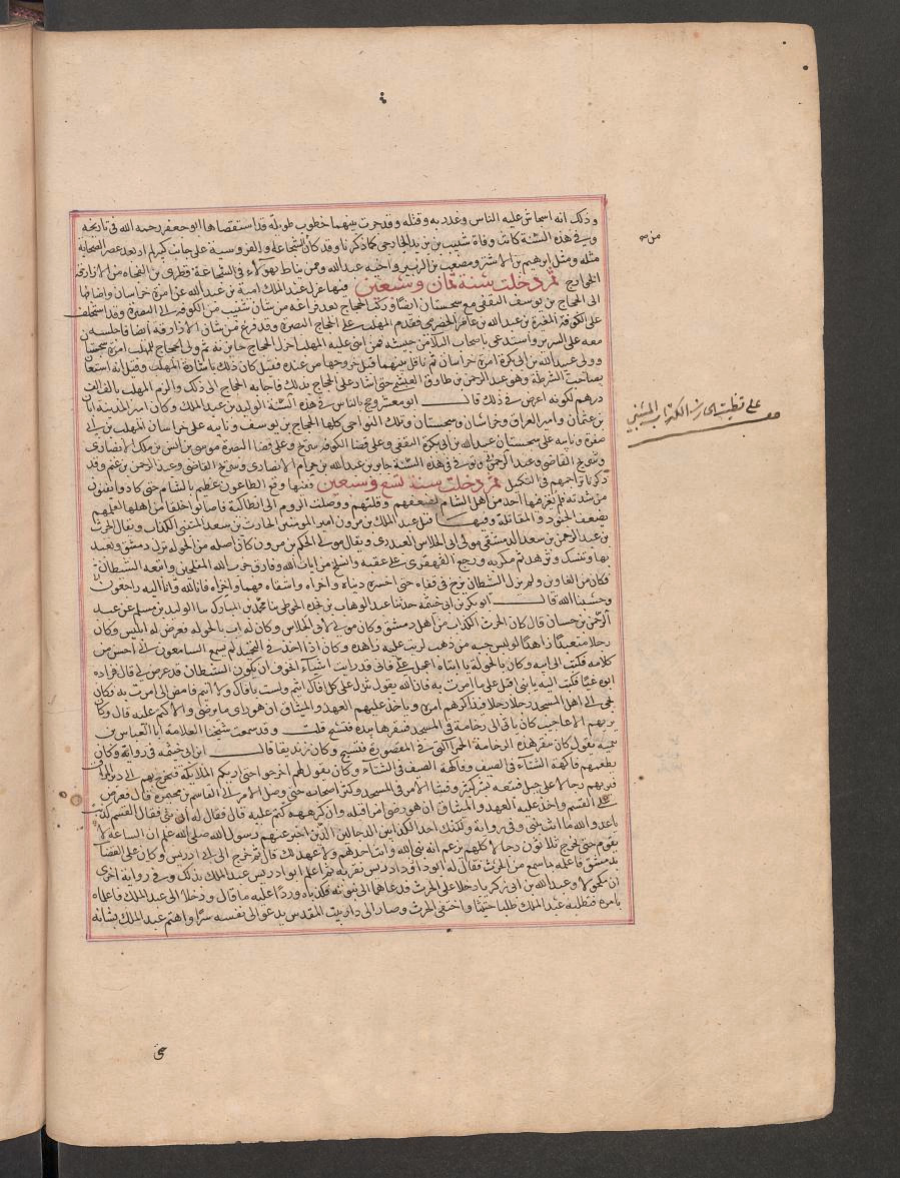 وذلك انه اسماش عليه الناس وغدر به وقتله وقد جرت بينهما خطوب طويلة قد استقصاها ابو جعفر رحمه الله في تاريخه
وفي هذه السنة كانت وفاة شبيب بن يزيد الخارجي كما ذكرنا وقد كان الشجاعة والفروسية على جانب كبير لم ار بعد عصر الصحابة
مثله ومثل ابرهيم بن الاشتر ومصعب بن الزبير واخيه عبد الله وممن يناط بهولاء في الشجاعة قطري بن الفجاه من الازارقة
الخوارج ثم دخلت سنة ثمان وسبعين ففيها عزل عبد الملك امية بن عبد الله عن امرة خراسان واضافها
الى الحجاج بن يوسف الثقفي مع سجستان ايضا وركب الحجاج بعد فراغه من شان شبيب من الكوفة الى البصرة وقد استخلف
على الكوفة المغيرة بن عبد الله بن عامر الحضرمي فقدم المهلب على الحجاج البصرة وقد فرغ من شان الازارقة ايضا فاجلسه
معه على السرير واستدعى باصحاب البلا من جيشه فمن اثنى عليه المهلب اجزل الحجاج جايزته ثم ولى الحجاج المهلب امرة سجستان
وولى عبد الله بن ابي بكرة امرة خراسان ثم ناقل بينهما قبل خروجهما من عنده فقيل كان ذلك باشارة المهلب وقيل انه استعان
بصاحب الشرطة وهو عبد الرحمن بن طارق العبشمي حتى اشار على الحجاج بذلك فاجابه الحجاج الى ذلك والزم المهلب بالف الف
درهم لكونه اعرض في ذلك قال ابو معشر وحج بالناس في هذه السنة الوليد بن عبد الملك وكان امير المدينة ابان
بن عثمان وامير العراق وخراسان وسجستان وتلك النواحي كلها الحجاج بن يوسف ونايبه على خراسان المهلب بن ابي
صفرة ونايبه على سجستان عبد الله بن ابي بكرة الثقفي وعلى قضا الكوفة شريح وعلى قضا البصرة موسى بن انس بن ملك الانصاري
ذكرنا تراجمهم في التكميل ثم دخلت سنة تسع وسبعين ففيها وقع الطاعون عظيم بالشام حتى كادوا يفنون
من شدته فلم يغز فيها احد من اهل الشام لضعفهم وقلتهم ووصلت الروم الى انطاكية فاصابوا خلقا من اهلها لعلمهم
بضعف الجنود والمقاتلة وفيها قتل عبد الملك بن مرون امير المومنين الحارث بن سعد المتنبي الكذاب ويقال الحرث
بن عبد الرحمن بن سعد الدمشقي مولى ابي الجلاس العبدري ويقال مولى الحكم بن مرون كان اصله من الحولة نزل دمشق وتعبد
بها وتنسك وتزهد ثم مكر به ورجع القهقرى على عقبيه وانسلخ من ايات الله وفارق حزب الله المفلحين واتبعه الشيطان
فكان من الغاوين ولم يزل الشيطان يزخ في قفاه حتى اخسره ديناه واخراه واشقاه فيهما واخزاه فانا لله وانا اليه راجعون
وحسبنا الله قال ابو بكر بن ابي خيثمة حدثنا عبد الوهاب بن نجدة الحوطي ثنا محمد بن المبارك ثنا الوليد بن مسلم عن عبد
الرحمن بن حسان قال كان الحرث الكذاب من اهل دمشق وكان مولى لابي الجلاس وكان له اب بالحولة فعرض له ابليس وكان
رجلا متعبدا زاهدا لو لبس جبة من ذهب لريت عليه زهادة وكان اذا اخذ في التحميد لم يسمع السامعون الى احسن من
كلامه فكتب الى ابيه وكان بالحولة يا ابتاه اعجل علي فاني قد رايت اشياء اتخوف ان يكون الشيطان قد عرض لي قال فزاده
ابوه غيا فكتب اليه يا بني اقبل على ما امرت به فان الله يقول تنزل على كل افاك اثيم ولست بافاك ولا اثيم فامض لما امرت به فكان
يجي الى اهل المسجد رجلا رجلا فيذاكرهم امره وياخذ عليهم العهد والميثاق ان هو راى ما يرضى والا كتم عليه قال وكان
يريهم الاعاجيب كان ياتي الى رخامة في المسجد فينقرها بيده فتسبح قلت وقد سمعت شيخنا العلامة ابا العباس بن
تيمية يقول كان ينقر هذه الرخامة الحمرا التي في المقصورة فتسبح وكان زنديقا قال ابن ابي خيثمة في روايته وكان
يطعمهم فاكهة الشتاء في الصيف وفاكهة الصيف في الشتاء وكان يقول لهم اخرجوا حتى اريكم الملايكة فيخرج بهم الى دير المران
فيريهم رجالا على خيل فتبعه بشر كثير وفشا الامر في المسجد وكثر اصحابه حتى وصل الامر الى القاسم بن مخيمرة قال فعرض
على القسم واخذ عليه العهد والميثاق ان هو رضي امرا قبله وان كرهه كتم عليه قال فقال له اني نبي فقال القسم كذبت
يا عدو الله ما انت بنبي وفي رواية ولكنك احد الكذابين الدجالين الذين اخبر عنهم رسول الله صلى الله عليه ان الساعة لا
تقوم حتى يخرج ثلاثون دجالا كلهم يزعم انه نبي الله وانت احدهم ولا عهد لك قال ثم خرج الى ابي ادريس وكان على القضا
بدمشق فاعلمه بما سمع من الحرث فقال له ابو ادريس نعرفه ثم اعلم ابو ادريس عبد الملك بذلك وفي رواية اخرى
ان مكحولا وعبد الله بن ابي زكريا دخلا على الحرث فدعاهما الى نبوته فكذباه وردا عليه ما قال ودخلا الى عبد الملك فاعلماه
بامره فتطلبه عبد الملك طلبا حثيثا واختفى الحرث وصار الى دار بيت المقدس يدعو الى نفسه سرا واهتم عبد الملك بشانه